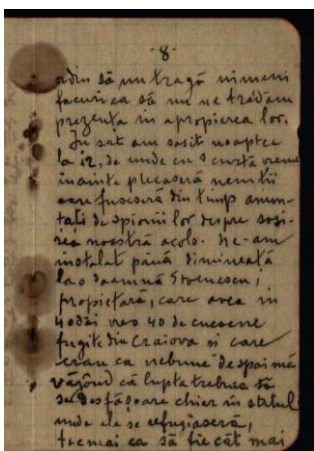 -8-
ordin să nu tragă nimeni
focuri ca să nu ne trădăm
prezența în apropierea lor.
În sat am sosit noaptea
la 12, de unde cu scurtă vreme
înainte plecaseră nemții
care fuseseră din timp anun-
tați de spionii lor despre sosi-
rea noastră acolo. Ne-am
instalat până dimineață
la o doamnă Stoenescu,
proprietară, care avea în
odăi vreo 40 de cucoane
fugite din Craiova și care
erau ca nebune de spaimă
văzând că lupta trebuia să
se desfășoare chiar în satul
unde ele se refugiaseră,
tocmai ca să fie cât mai